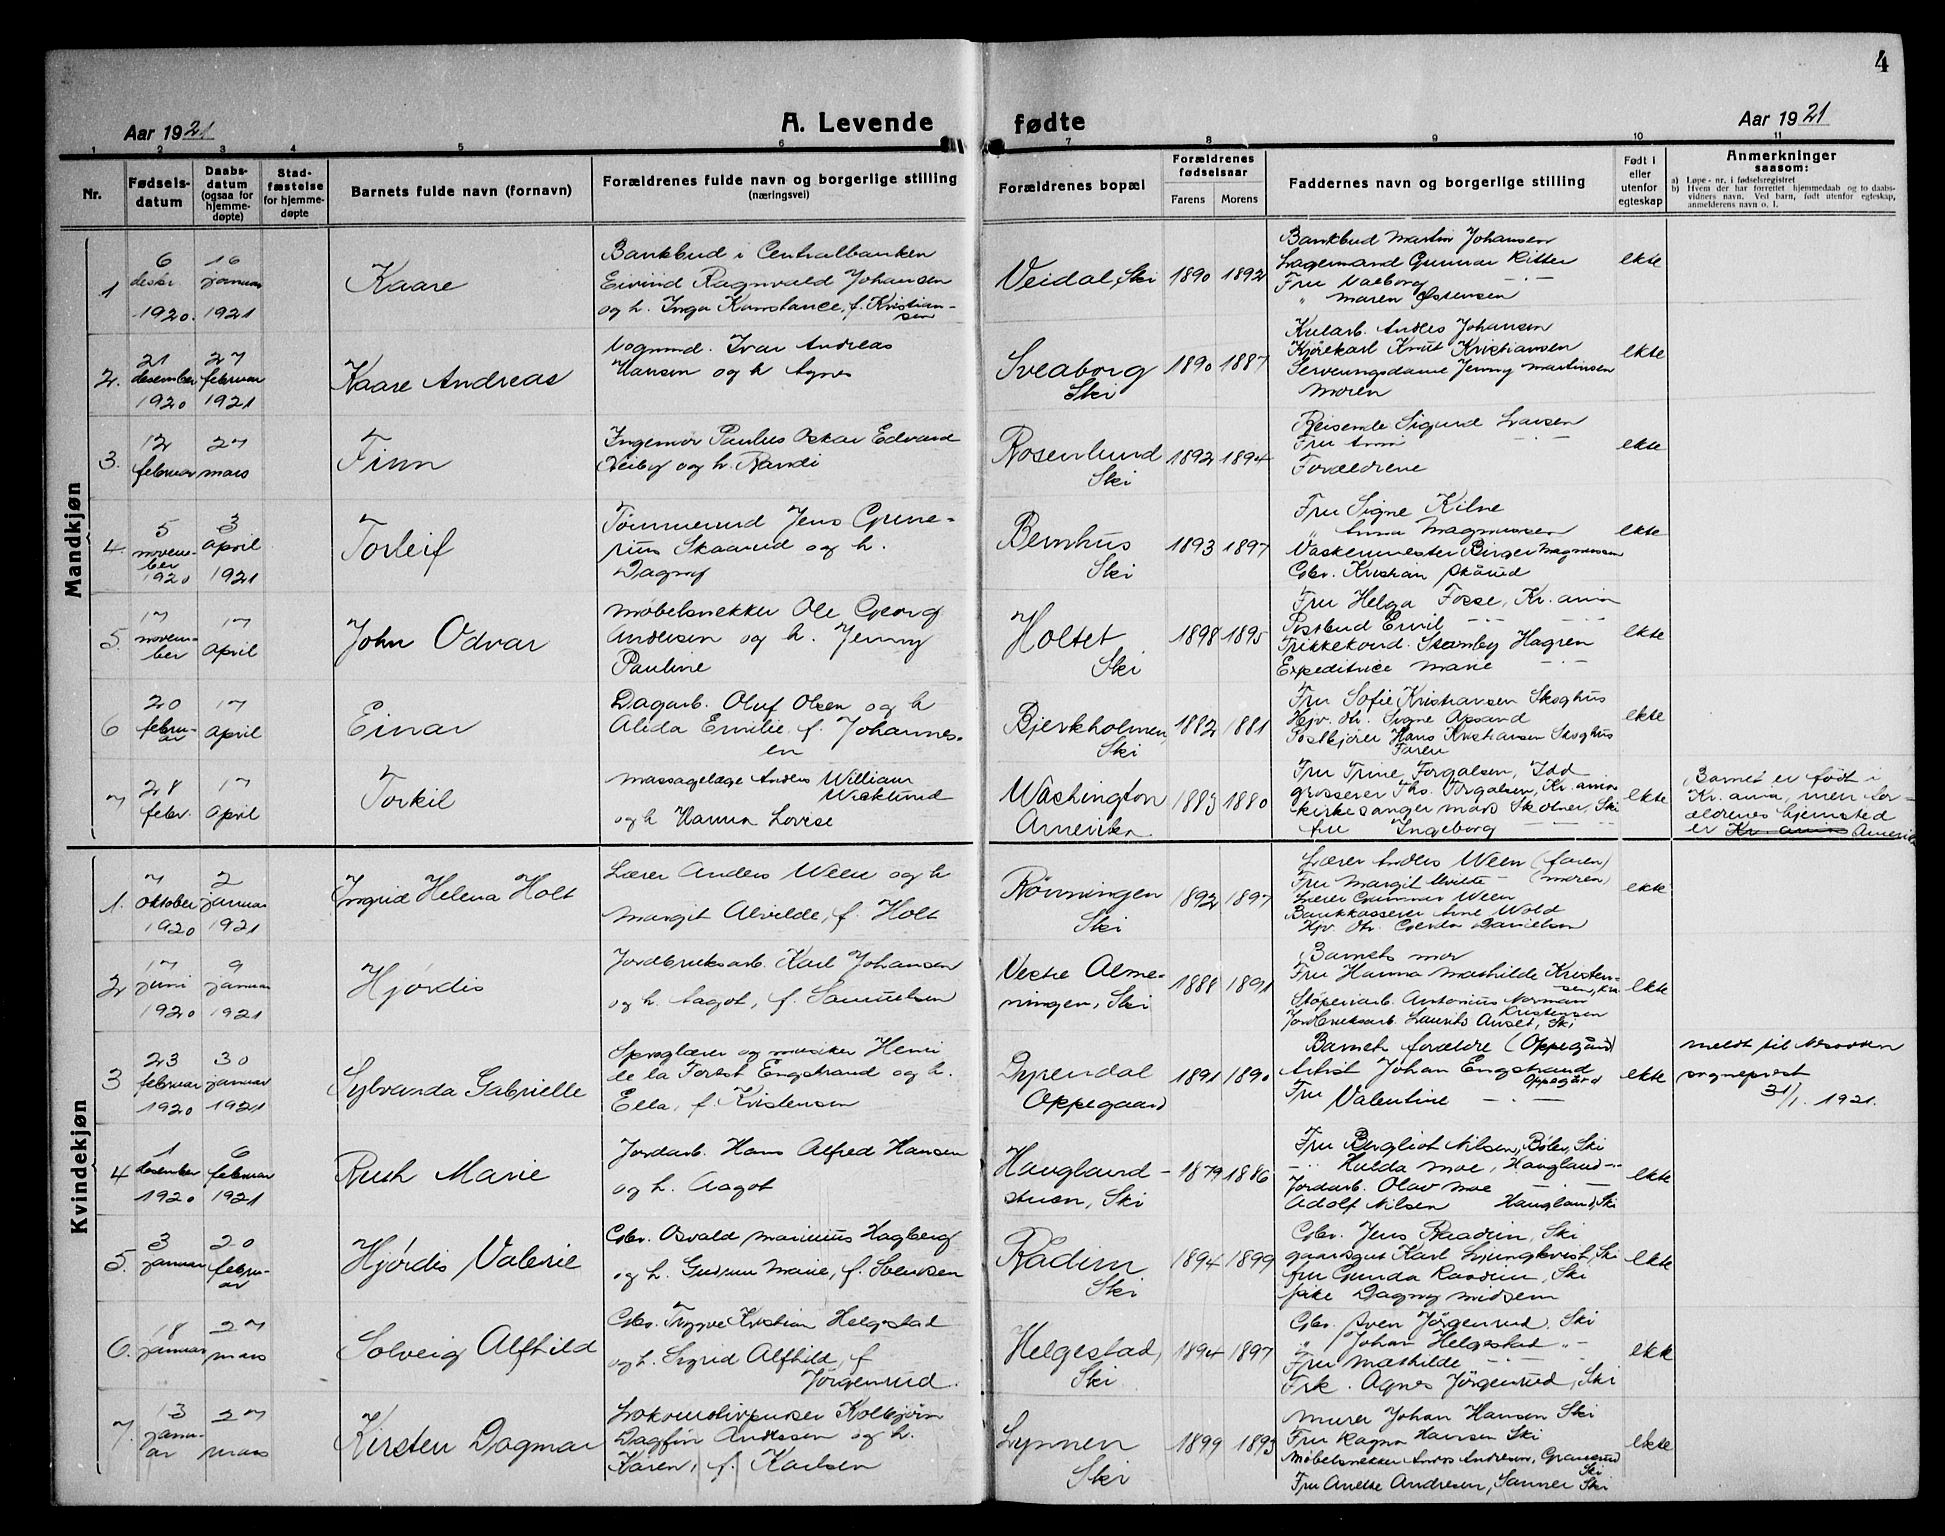 4
Aar 1921
A. Levende fødte
Aar 1921
1 2 3 4 5 6 7 8 9 10 11
Nr.
Fødselsdatum
Daabsdatum (ogsaa for hjemmedøpte)
Stadfæstelse for hjemmedøpte
Barnets fulde navn (fornavn)
Forældrenes fulde navn og borgerlige stilling (næringsvei)
Forældrenes bopæl
Forældrenes fødselsaar
Farens
Morens
Faddernes navn og borgerlige stilling
Født i eller utenfor egteskap
Anmerkninger saasom:
a) Løpe-nr. i fødselsregistret
b) Hvem der har forrettet hjemmedaab og to daabsvidners navn. Ved barn, født utenfor egteskap, anmelderens navn o. l.
Mandkjøn
1
6 desbr 1920.
16 januar 1921
Kaare
Bankbud i Centralbanken
Eivind Ragnvald Johansen
og h. Inga Konstance, f. Kristiansen
Veidal Ski
1890 1892
Bankbud Martin Johansen
Lagermand Gunnar Ritter
Fru Valborg -"-
" Maren Østensen
ekte
2.
21 desember 1920
27 februar 1921
Kaare Andreas
Vognmd. Ivar Andreas
Hansen og h Agnes
Sveaborg
Ski
1890 1887
Kularb. Anders Johansen
Kjørekarl Knut Kristiansen
Serveringsdame Jenny Martinsen
Moren
ekte
3.
12 februar
27 mars
Finn
Ingeniør Paulus Oskar Edvard
og h. Randi
Rosenlund
Ski
1892 1894
Reisende Sigurd Larsen
Fru Anni -"-
Forældrene
ekte
4.
5 november 1920
3 april 1921
Torleif
Tømmermd Jens Grunerius Skaarud og h.
Dagny
Bernhus
Ski
1893 1897
Fru Signe Kilne
" Anna Magnussen
Vaskemester Birger Magnussen
Gbr. Kristian Skårud
ekte
5.
17 november
17 april
John Odvar
Møbelsnekker Ole Georg
Andersen og h. Jenny
Pauline
Holtet
Ski
1898 1895
Fru Helga Fosse, Kr.ania
Postbud Emil -"- -"-
Trikkekond. Stamby Hagren
Expeditrice Marie -"-
ekte
6
20 februar
17 april
Einar
Dagarb. Oluf Olsen og h
Alida Emilie f. Johannesen
Bjerkholmen,
Ski
1882 1881
Fru Sofie Kristiansen Skoghus
Hjv. dtr. Signe Apsand
Postkjører Hans Kristiansen Skoghus
Faren
ekte
7
28 febr.
17 april
Torkil
Massagelæge Anders William
Wicklund
og h Hanna Lovise
Washington
Amerika
1883 1880
Fru Trine Torgalsen, Idd
grosserer Ths. Torgalsen, Kr.ania
kirkesanger Mads Skolner, Ski
fru Ingeborg -"-
ekte
Barnet er født i
Kr.ania, men forældrenes hjemsted
er Kr. ania Amerika
Kvindekjøn
1.
7 oktober 1920
2 januar 1921
Ingrid Helena Holt
Lærer Anders Ween og h
Margit Alvilde, f. Holt
Rønningen
Ski
1892 1897
Lærer Anders Ween (faren)
Fru Margit Alvilde -"- (moren)
Lærer Gunnar Ween
Bankkasserer Arne Wold
Hjv. dtr. Gerda Danielsen
ekte
2
17 juni 1920
9 januar 1921
Hjørdis
Jordbruksarb. Karl Johansen
og h. Aagot, f. Samuelsen
Vestre Almeningen, Ski
1888 1891
Barnets mor
Fru Hanna Mathilde Kristensen, Kra
Støperiarb. Antonius Norman
Kristensen
Jordbruksarb. Laurits Anset, Ski
ekte
3
23 februar 1920
30 januar 1921
Sylvanda Gabrielle
Sproglærer og musiker Henri
de la Forest Engstrand og h.
Ella, f. Kristensen
Dypendal
Oppegaard
1891 1890
Barnets forældre (Oppegård)
Artist Johan Engstrand
Oppegård
Fru Valentine -"-
ekte
meldt til Nesodden
sogneprest
31/1. 1921.
4
1 desember 1920
6 februar 1921
Ruth Marie
Jordarb. Hans Alfred Hansen
og h. Aagot
Hauglandstuen, Ski
1879 1886
Fru Bergliot Nilsen, Bøler, Ski
-"- Hulda Moe, Haugland -"-
Jordarb. Olav Moe -"- -"-
Adolf Nilsen Haugland, Ski
ekte
5.
3 januar
20 februar
Hjørdis Valerie
Gbr. Osvald Marinius Hagberg
og h. Gudrun Marie, f. Svensen
Rådim
Ski
1894 1899
Gbr. Jens Raadim, Ski
gaardsgut Karl Ljungkvist, Ski
fru Gunda Raadim, Ski
pike Dagny Midsem
ekte
6.
18 januar
27 mars
Solveig Alfhild
Gbr. Trygve Kristian Helgestad
og h. Sigrid Alfhild, f
Jørgenrud.
Helgestad,
Ski
1894 1897
Gbr. Sven Jørgenrud, Ski
" Johan Helgestad -"-
Fru Mathilde -"- -"-
Frk. Agnes Jørgenrud, Ski
ekte
7.
13 januar
27 mars
Kirsten Dagmar
Lokomotivpudser Kolbjørn
Dagfin Andersen og h.
Karen, f. Karlsen
Lynnen
Ski
1899 1895
Murer Johan Hansen Ski
Fru Ragna Hansen Ski
Møbelsnekker Anders Andresen, Granerud
Ski
Fru Anette Andresen, Sanner Ski
ekte